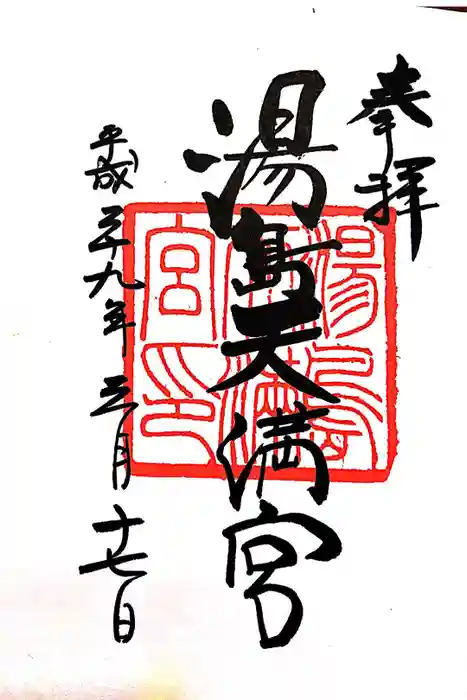 奉拝
湯島天満宮
平成二十九年三月十七日
湯島天満宮印